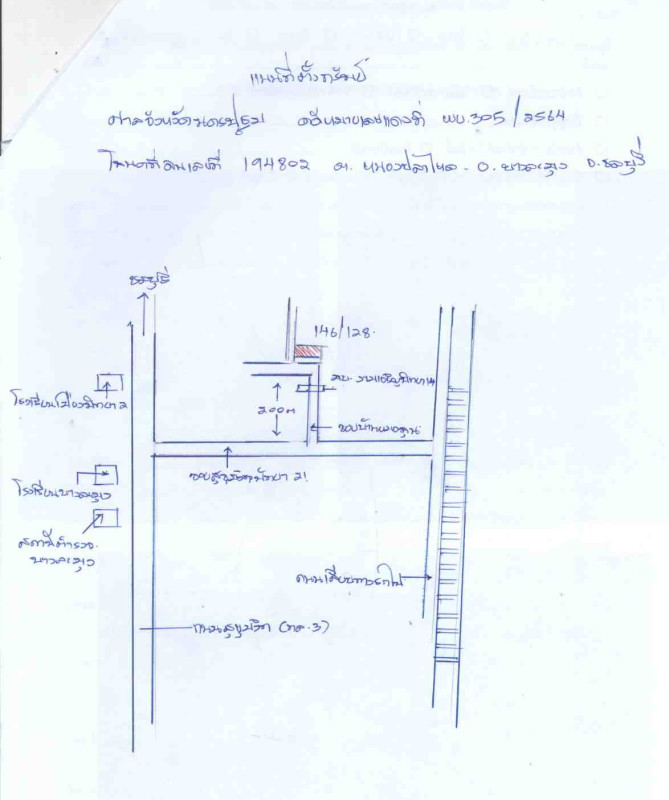 แผนที่ตั้งทรัพย์
ศาลจังหวัดนครปฐม คดีหมายเลขแดงที่ พบ.305/2564
โฉนดที่ดินเลขที่ 194802 ต. หนองปลาไหล อ. บางละมุง จ. ชลบุรี
ชลบุรี
146/128
โรงเรียนเมืองพัทยา 2
200 m
ซอยสุขุมวิทพัทยา 21
โรงเรียนบางละมุง
สถานีตำรวจ
บางละมุง
ถนนเลียบทางรถไฟ
ถนนสุขุมวิท (ทล.3)